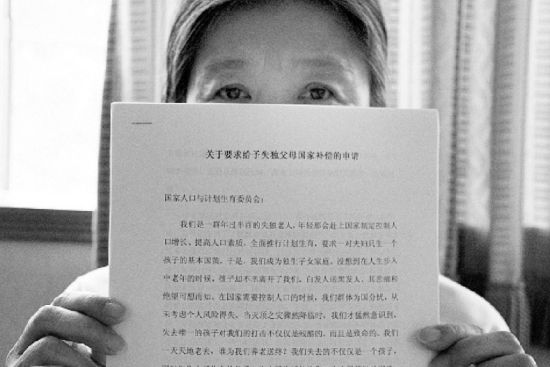 关于要求给予失独父母国家补偿的申请
国家人口与计划生育委员会：
我们是一群年过半百的失独老人，年轻那会赶上国家制定控制人
口增长、提高人口素质，全面推行计划生育，要求一对夫妇只生一个
孩子的基本国策，于是，我们成为独生子女家庭。没想到在人生步入
中老年的时候，孩子却不幸离开了我们，白发人送黑发人，其悲痛和
绝望可想而知。在国家需要控制人口的时候，我们群体为国分忧，从
未考虑个人风险得失。当灭顶之灾骤然降临时，我们才猛然意识到，
失去唯一的孩子对我们的打击不仅仅是残酷的，而且是致命的。我们
一天天地老去，谁为我们养老送终？我们失去的不仅仅是一个孩子，